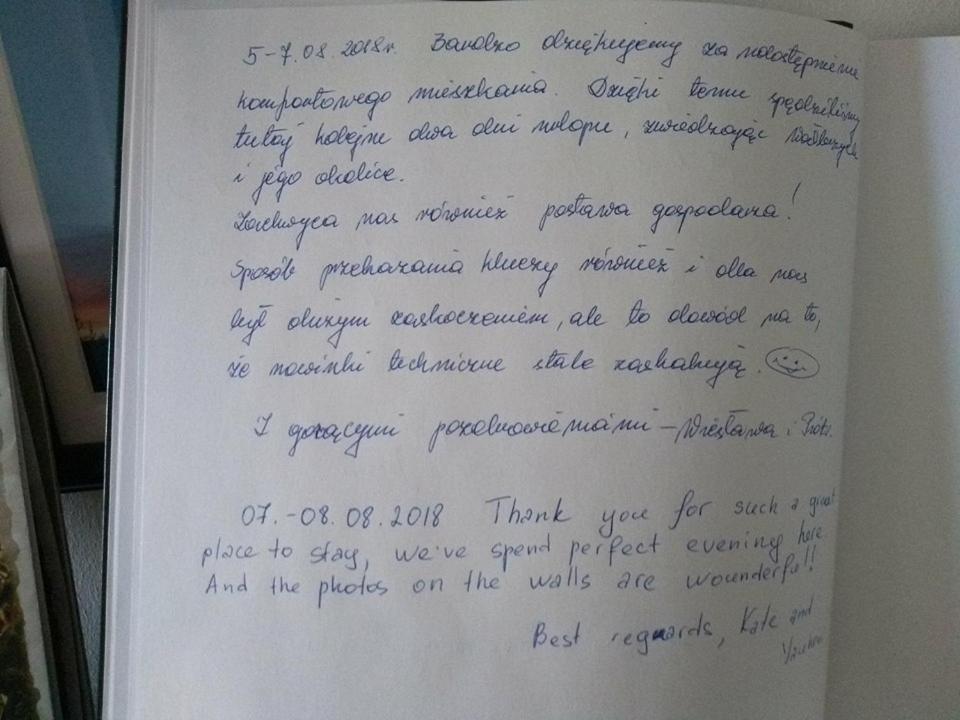 5-7.08.2018r. Bardzo dziękujemy za udostępnienie
komfortowego mieszkania. Dzięki temu spędziliśmy
tutaj kolejne dwa dni urlopu, zwiedzając
i jego okolice.
Zachwyca nas również postawa gospodarza!
Sposób przekazania kluczy również i dla nas
był dużym zaskoczeniem, ale to dowód na to,
że nowinki techniczne stale zaskakują.
Z gorącymi pozdrowieniami - Wiesława i Piotr.
07.-08.08.2018 Thank you for such a great
place to stay, we've spend perfect evening here.
And the photos on the walls are wounderful!!
Best regards, Kate and